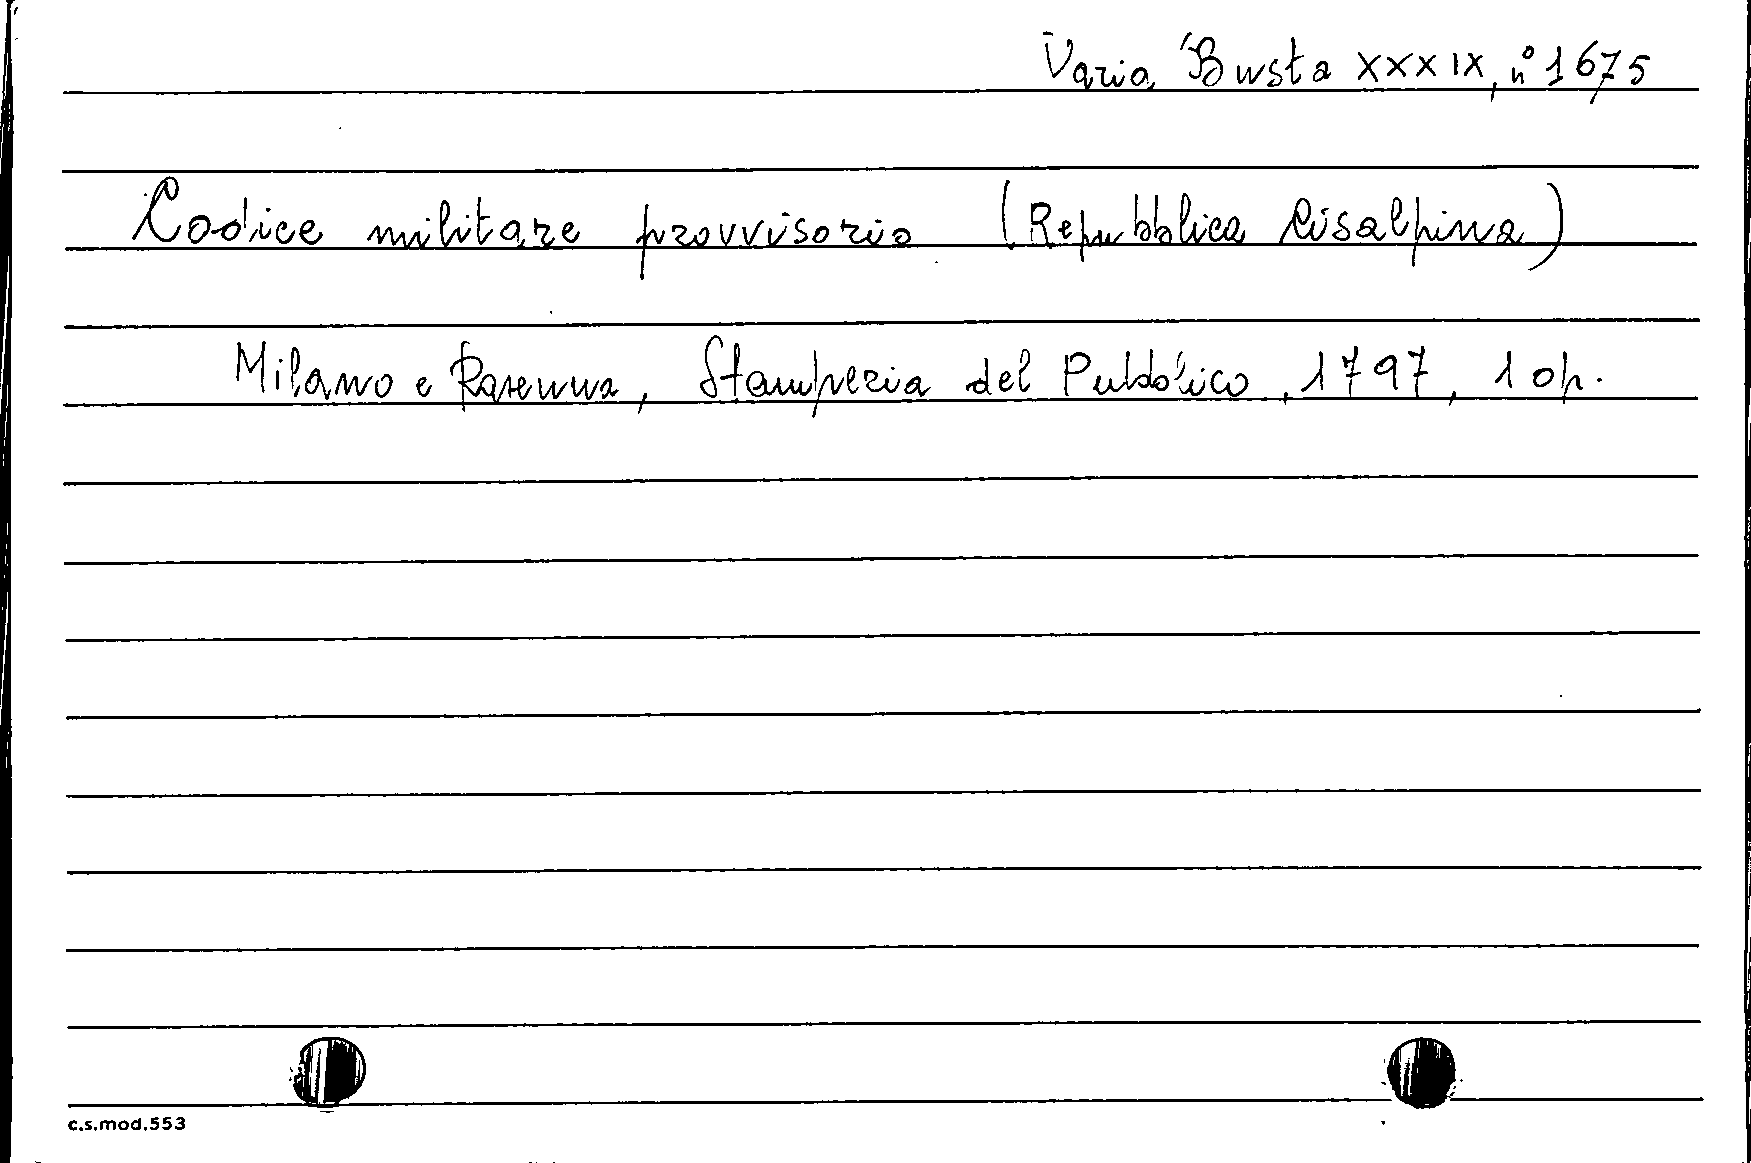 Varia Busta XXXIX, n° 1675
Codice militare provvisorio (Repubblica Cisalpina)
Milano e Ravenna, Stamperia del Pubblico, 1797, 1 op.
c.s.mod.553